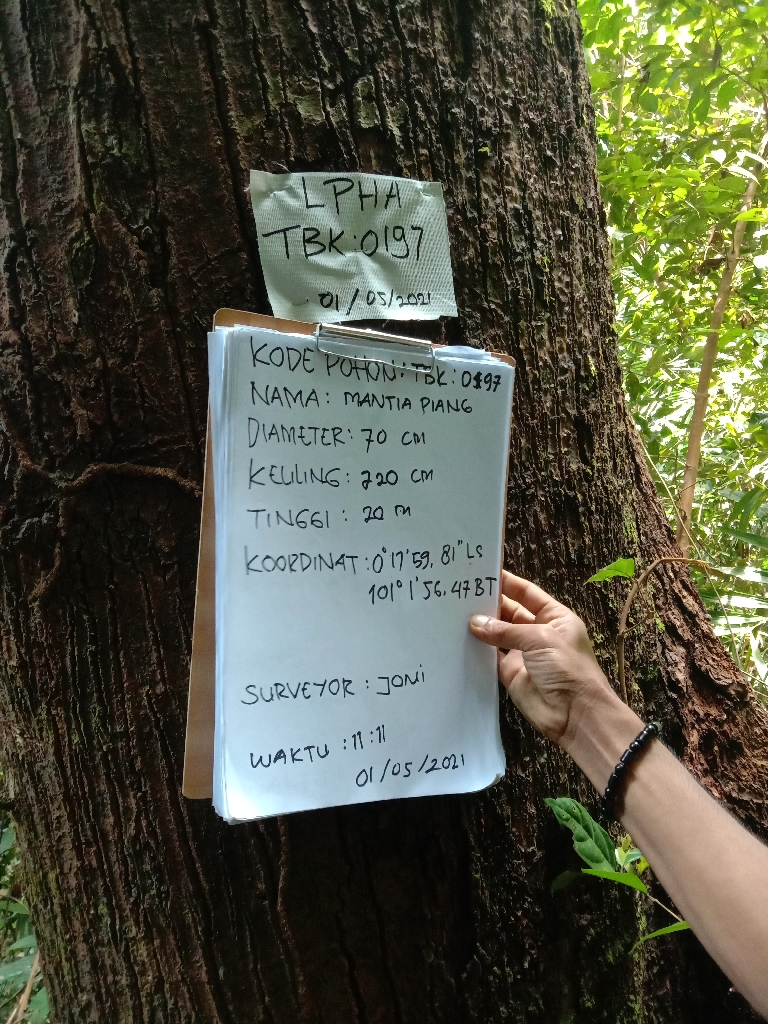 LPHA
TBK:0197
01/05/2021
KODE POHON: TBK: 0197
NAMA: MANTIA PIANG
DIAMETER: 70 CM
KELILING: 220 CM
TINGGI: 20 M
KOORDINAT: 0°17'59,81" LS
101°1'56,47 BT
SURVEYOR: JONI
WAKTU: 11:11
01/05/2021